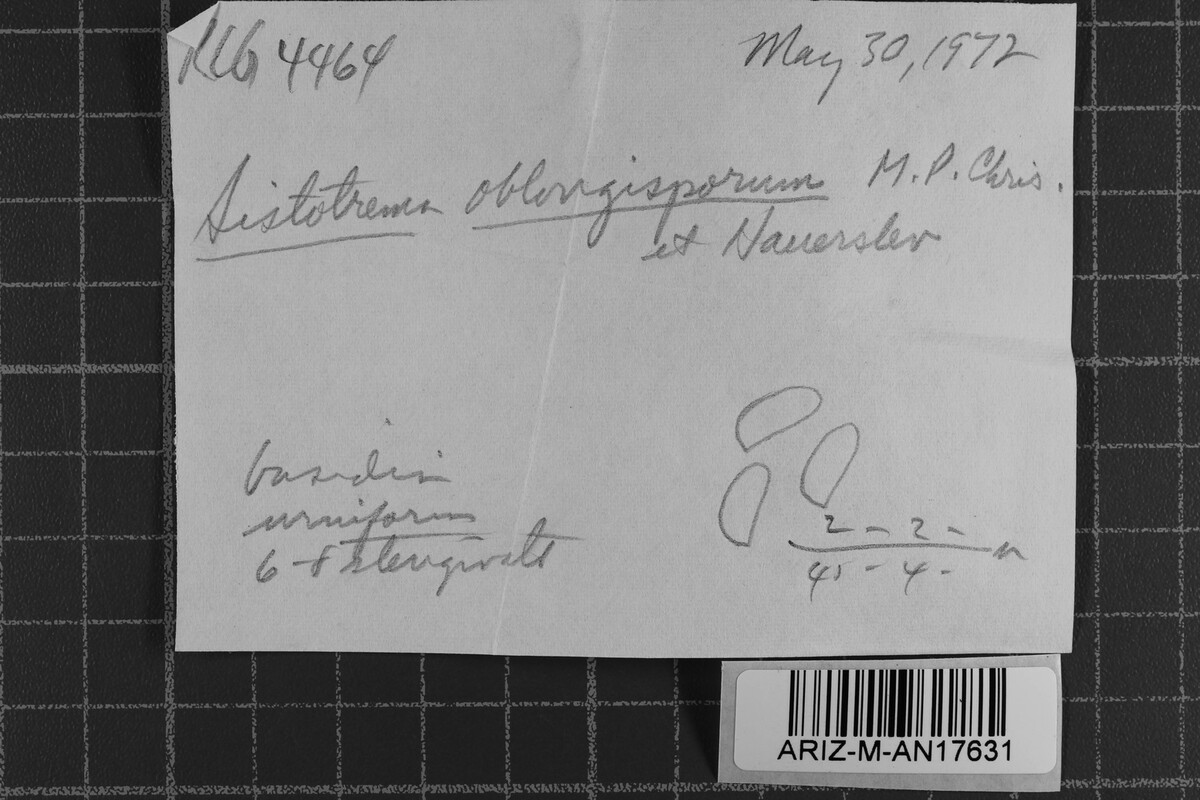 RLG 4464
May 30, 1972
Sistotrema oblongisporum M.P. Chris.
et Hauerslev
basidia
urniform
6-8 sterigmata
2 - 2 -
45 - 4 -
ARIZ-M-AN17631